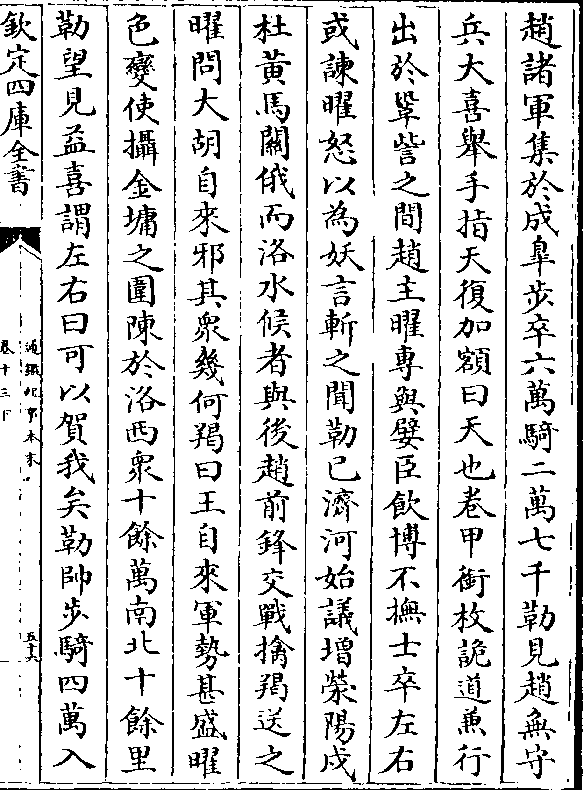 趙諸軍集於成臯步卒六萬騎二萬七千勒見趙無守
兵大喜舉手指天復加額曰天也卷甲銜枚詭道兼行
出於鞏訾之間趙主曜専與嬖臣飲博不撫士卒左右
或諫曜怒以為妖言斬之聞勒已濟河始議增滎陽戍
杜黄馬關俄而洛水候者與後趙前鋒交戰擒羯送之
曜問大胡自來邪其衆幾何羯曰王自來軍勢甚盛曜
色變使攝金墉之圍陳於洛西衆十餘萬南北十餘里
勒望見益喜謂左右曰可以賀我矣勒帥步騎四萬入
欽定四庫全書
通鑑紀事本末
卷十三下
五十六